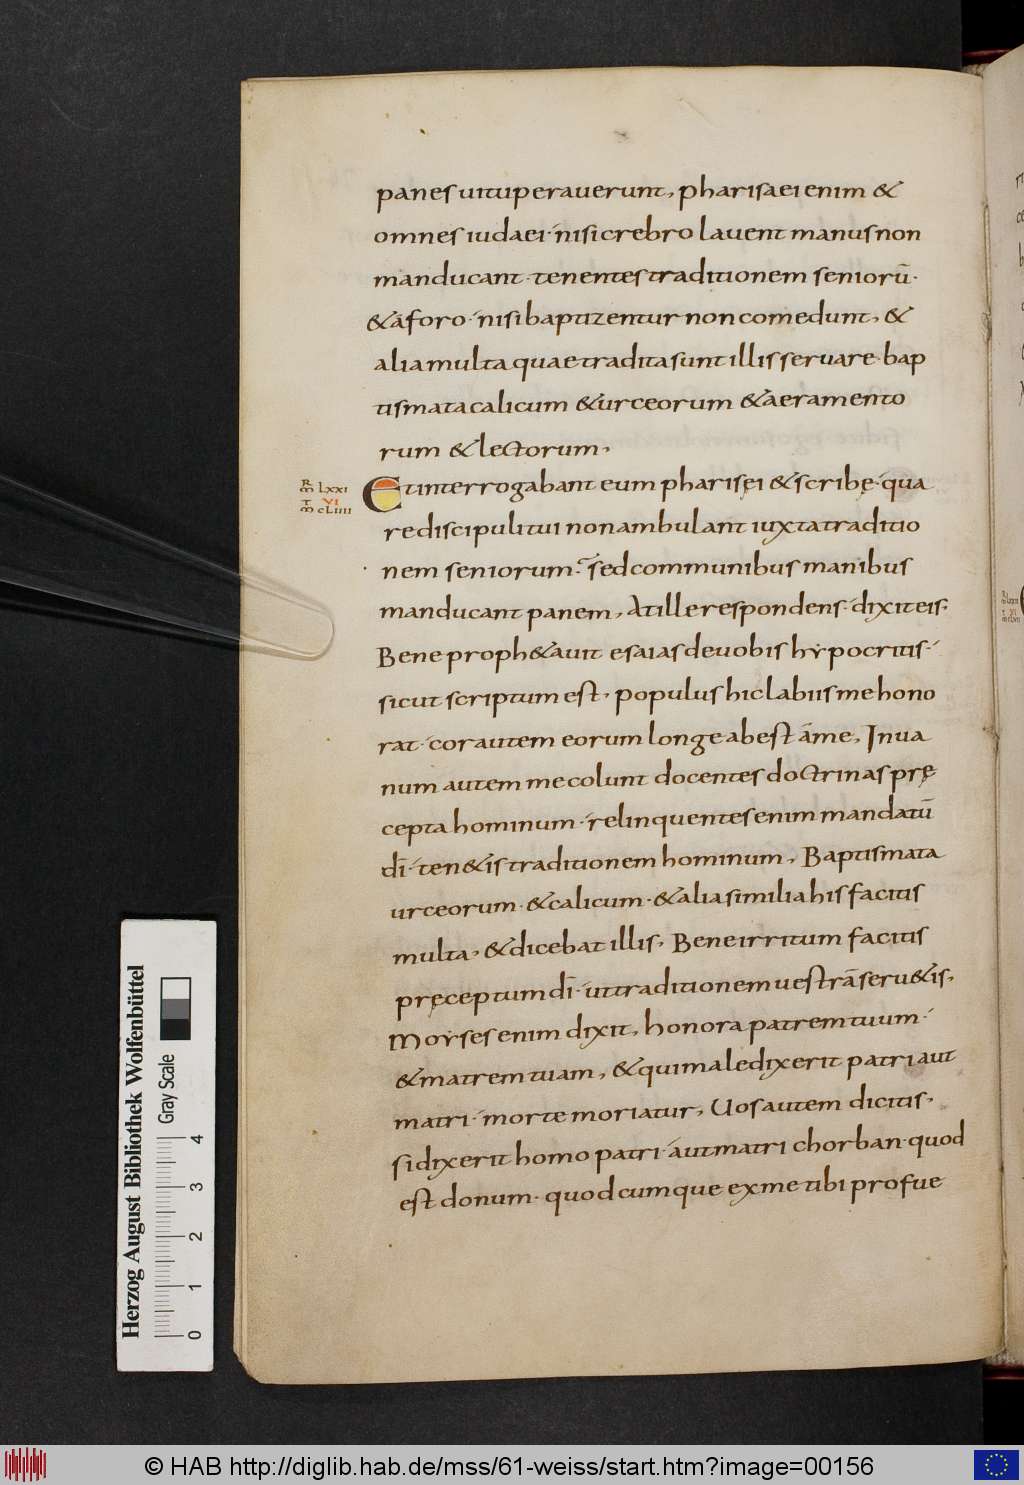 panes uituperauerunt, pharisaei enim &
omnes iudaei · nisi crebro lauent manus non
manducant · tenentes traditionem seniorū ·
& áforo · nisi baptizentur non comedunt, &
alia multa quae tradita sunt illis seruare · bap
tismata calicum & urceorum & aeramento
rum & lectorum,
Et interrogabant eum pharisęi & scribę · qua
re discipuli tui non ambulant iuxta traditio
nem seniorum? sed communibus manibus
manducant panem, At ille respondens · dixit eis ·
Bene proph&auit esaias de uobis hypocritis ·
sicut scriptum est, populus hic labiis me hono
rat · cor autem eorum longe abest áme, In ua
num autem me colunt docentes doctrinas prę
cepta hominum · relinquentes enim mandatū
dī · ten&is traditionem hominum, Baptismata
urceorum · & calicum · & alia similia his facitis
multa, & dicebat illis, Bene irritum facitis
pręceptum dī · ut traditionem uestrā seru&is,
Moyses enim dixit, honora patrem tuum ·
& matrem tuam, & qui maledixerit patri aut
matri · morte moriatur, Uos autem dicitis,
si dixerit homo patri · aut matri chorban · quod
est donum · quodcumque ex me tibi profue
R̄ m LXXI
VI
T̄ m cLIIII
Herzog August Bibliothek Wolfenbüttel
Gray Scale
0 1 2 3 4
© HAB http://diglib.hab.de/mss/61-weiss/start.htm?image=00156